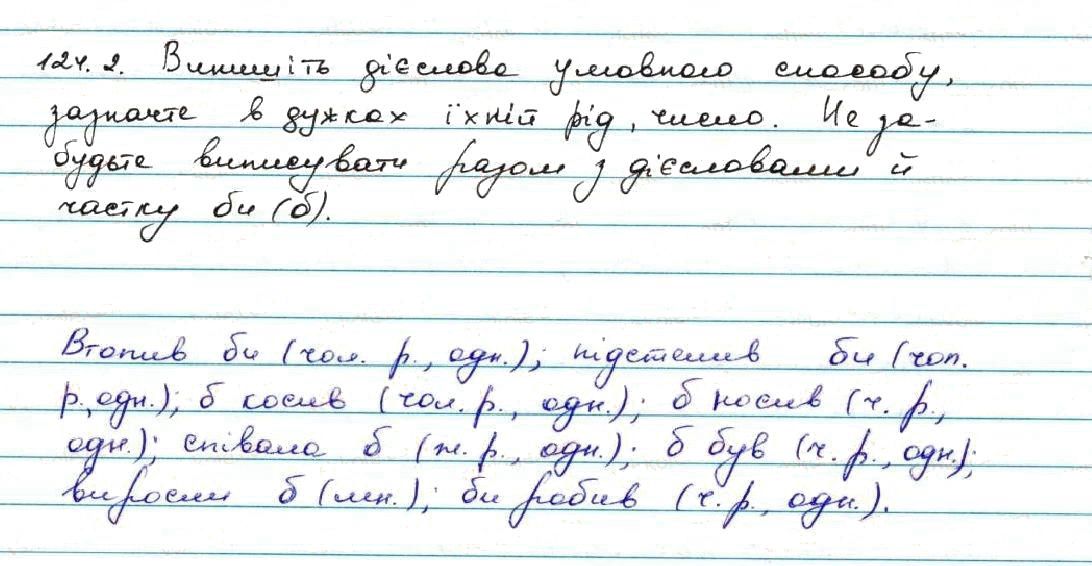 124. 2. Випишіть дієслова умовного способу,
зазначте в дужках їхній рід, число. Не за-
будьте виписувати разом з дієсловами й
частку би (б).
Втопив би (чол. р., одн.); підстелив би (чол.
р., одн.); б косив (чол. р., одн.); б носив (ч. р.,
одн.); співала б (ж. р., одн.); б був (ч. р., одн.);
виросли б (мн.); би робив (ч. р., одн.).